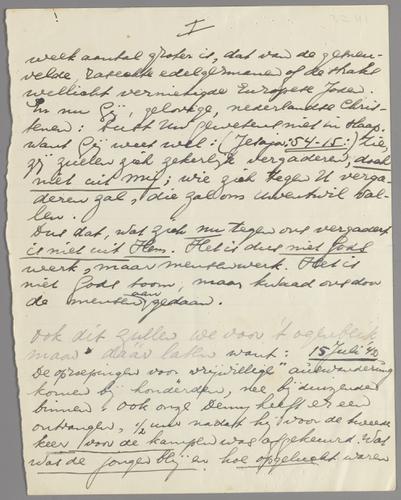 I
welk aantal groter is, dat van de gesneu-
velde, raszechte edelgermanen of de straks
wellicht vernietigde Europese Joden.
En nu Gij, gelovige, nederlandse Chris-
tenen: sust Uw geweten niet in slaap.
Want Gij weet wel: (Jesaja: 54-15:) "Zie,
zij zullen zich zekerlijk vergaderen, doch
niet uit mij; wie zich tegen U verga-
deren zal, die zal om Uwentwil val-
len.
Dus dat, wat zich nu tegen ons vergadert
is niet uit Hem. Het is dus niet Gods
werk, maar mensenwerk. Het is
niet Gods toorn, maar kwaad ons door
de mensen aan gedaan.
ook dit zullen we voor 't ogenblik
maar daar laten want: 15 Juli '42
De oproepingen voor "vrijwillige" arbeid
komen bij honderden, nee bij duizenden
binnen. Ook onze Denny heeft er een
ontvangen, 1/2 uur nadat hij voor de tweede
keer voor de kampen was afgekeurd. Wat
was de jongen blij en hoe opgelucht waren